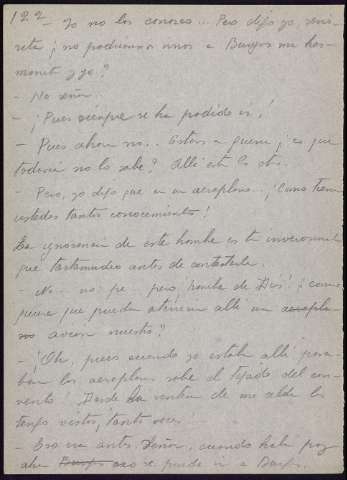 122
- Yo no los conozco... Pero dijo yo, seño-
rita ¿ no podríamos irnos a Burgos mi her-
monit y yo?
- No señor.
- ¡Pues siempre se ha podido ir!
- Pues ahora no... Estamos en guerra ¿es que
todavía no lo sabe? Allí está la otra.
- Pero, yo dijo que en un aeroplano... ¡Como tienen
ustedes tantos conocimientos!
La ignorancia de este hombre es tan inverosímil
que tartamudeo antes de contestarle.
- No.. no pe.. pero ¡hombre de Dios! ¿ como
quiere que puedan aterrizar allí un aeropla-
no avion nuestro?
- ¡Oh, pues cuando yo estaba allí pasa-
ban los aeroplanos sobre el tejado del con-
vento! Desde la ventana de mi celda los
tengo vistos, tantas veces...
- Eso era antes Señor, cuando había paz
ahora Burgos no se puede ir a Burgos.